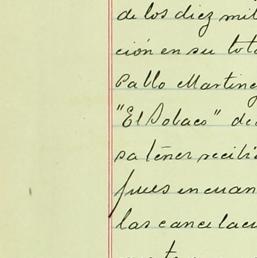 de los diez mil
ción en su tota
Pablo Martinez
"El Sobaco" de
sa tener recibi
pues en cuan
las cancelaci